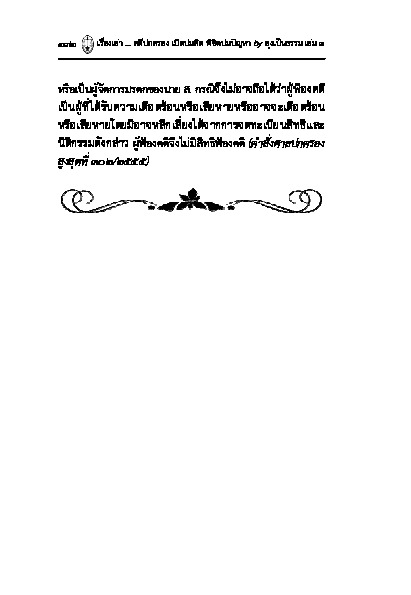 เรื่องเล่า ... คดีปกครอง เปิดปมคิด พิชิตปมปัญหา by ลุงเป็นธรรม เล่ม ๓
หรือเป็นผู้จัดการมรดกของนาย ส. กรณีจึงไม่อาจถือได้ว่าผู้ฟ้องคดี
เป็นผู้ที่ได้รับความเดือดร้อนหรือเสียหายหรืออาจจะเดือดร้อน
หรือเสียหายโดยมิอาจหลีกเลี่ยงได้จากการจดทะเบียนสิทธิและ
นิติกรรมดังกล่าว ผู้ฟ้องคดีจึงไม่มีสิทธิฟ้องคดี (คำสั่งศาลปกครอง
สูงสุดที่ ๓๐๒/๒๕๕๕)